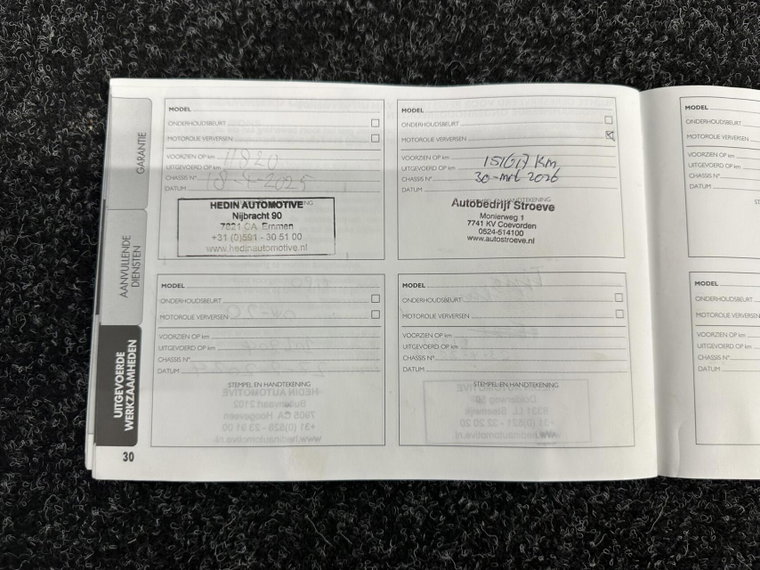 GARANTIE
AANVULLENDE
DIENSTEN
UITGEVOERDE
WERKZAAMHEDEN
30
MODEL
ONDERHOUDSBEURT
MOTOROLIE VERVERSEN
VOORZIEN OP km
UITGEVOERD OP km
CHASSIS N°
18-4-2025
DATUM
HEDIN AUTOMOTIVE
Nijbracht 90
7821 CA Emmen
+31 (0)591 - 30 51 00
www.hedinautomotive.nl
MODEL
ONDERHOUDSBEURT
MOTOROLIE VERVERSEN
VOORZIEN OP km
UITGEVOERD OP km
CHASSIS N°
DATUM
STEMPEL EN HANDTEKENING
Autobedrijf Stroeve
Monierweg 1
7741 KV Coevorden
0524-514100
www.autostroeve.nl
MODEL
ONDERHOUDSBEURT
MOTOROLIE VERVERSEN
VOORZIEN OP km
UITGEVOERD OP km
CHASSIS N°
DATUM
STEMPEL EN HANDTEKENING
MODEL
ONDERHOUDSBEURT
MOTOROLIE VERVERSEN
VOORZIEN OP km
UITGEVOERD OP km
CHASSIS N°
DATUM
STEMPEL EN HANDTEKENING
MODEL
ONDERHOUDSBEURT
MOTOROLIE VERVERSEN
VOORZIEN OP km
UITGEVOERD OP km
CHASSIS N°
DATUM
MODEL
ONDERHOUDSBEURT
MOTOROLIE VERVERSEN
VOORZIEN OP km
UITGEVOERD OP km
CHASSIS N°
DATUM